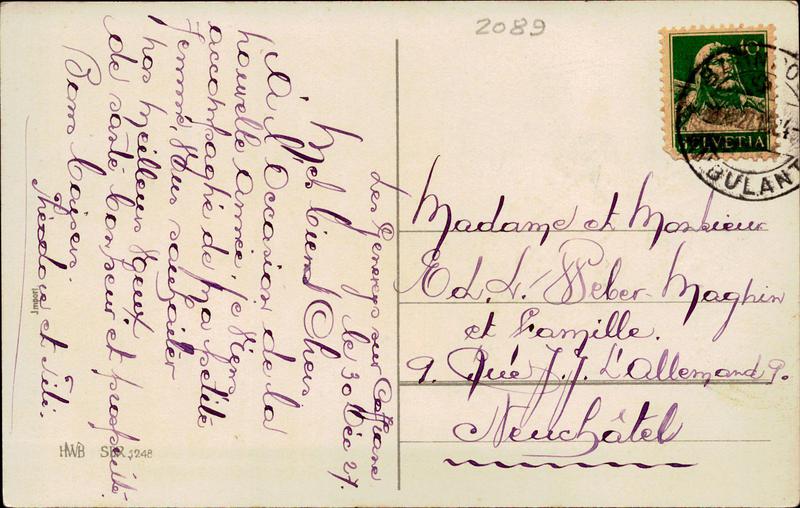 2089
Les Geneveys sur Coffrane
le 30 Déc 27.
Mes biens Chers
A l'Occasion de la
nouvelle année, je viens
accompagné de ma petite
femme, vous souhaiter
nos meilleurs voeux
de santé bonheur et prospérité.
Bons baisers
Théodore et
Import
HWB SER. 1248
10
HELVETIA
AMBULANT
Madame et Monsieur
Ed. L. Weber-Magnin
et Famille.
9. Rue J. J. L'allemand 9.
Neuchâtel